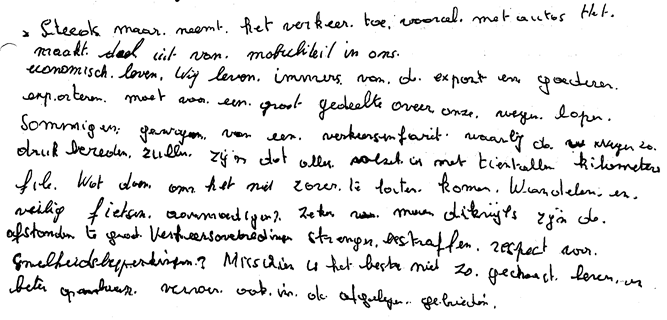 Steeds maar neemt het verkeer toe, vooral met autos Het.
maakt deel uit van mobiliteit in ons.
economisch leven. Wij leven immers van de export en goederen.
exporteren moet voor een groot gedeelte over onze wegen lopen.
Sommigen gewagen van een verkeersinfarct waarbij de wegen zo.
druk bereden zullen zijn dat alles met tientallen kilometers
file. Wat doen om het niet zover te laten komen. Wandelen en.
veilig fietsen aanmoedigen? zijn de.
afstanden te groot. Verkeersovertredingen strenger bestraffen. respect voor.
snelheidsbeperkingen? Misschien is het beste niet zo gehaast leven, en
beter openbaar vervoer ook in de afgelegen gebieden.